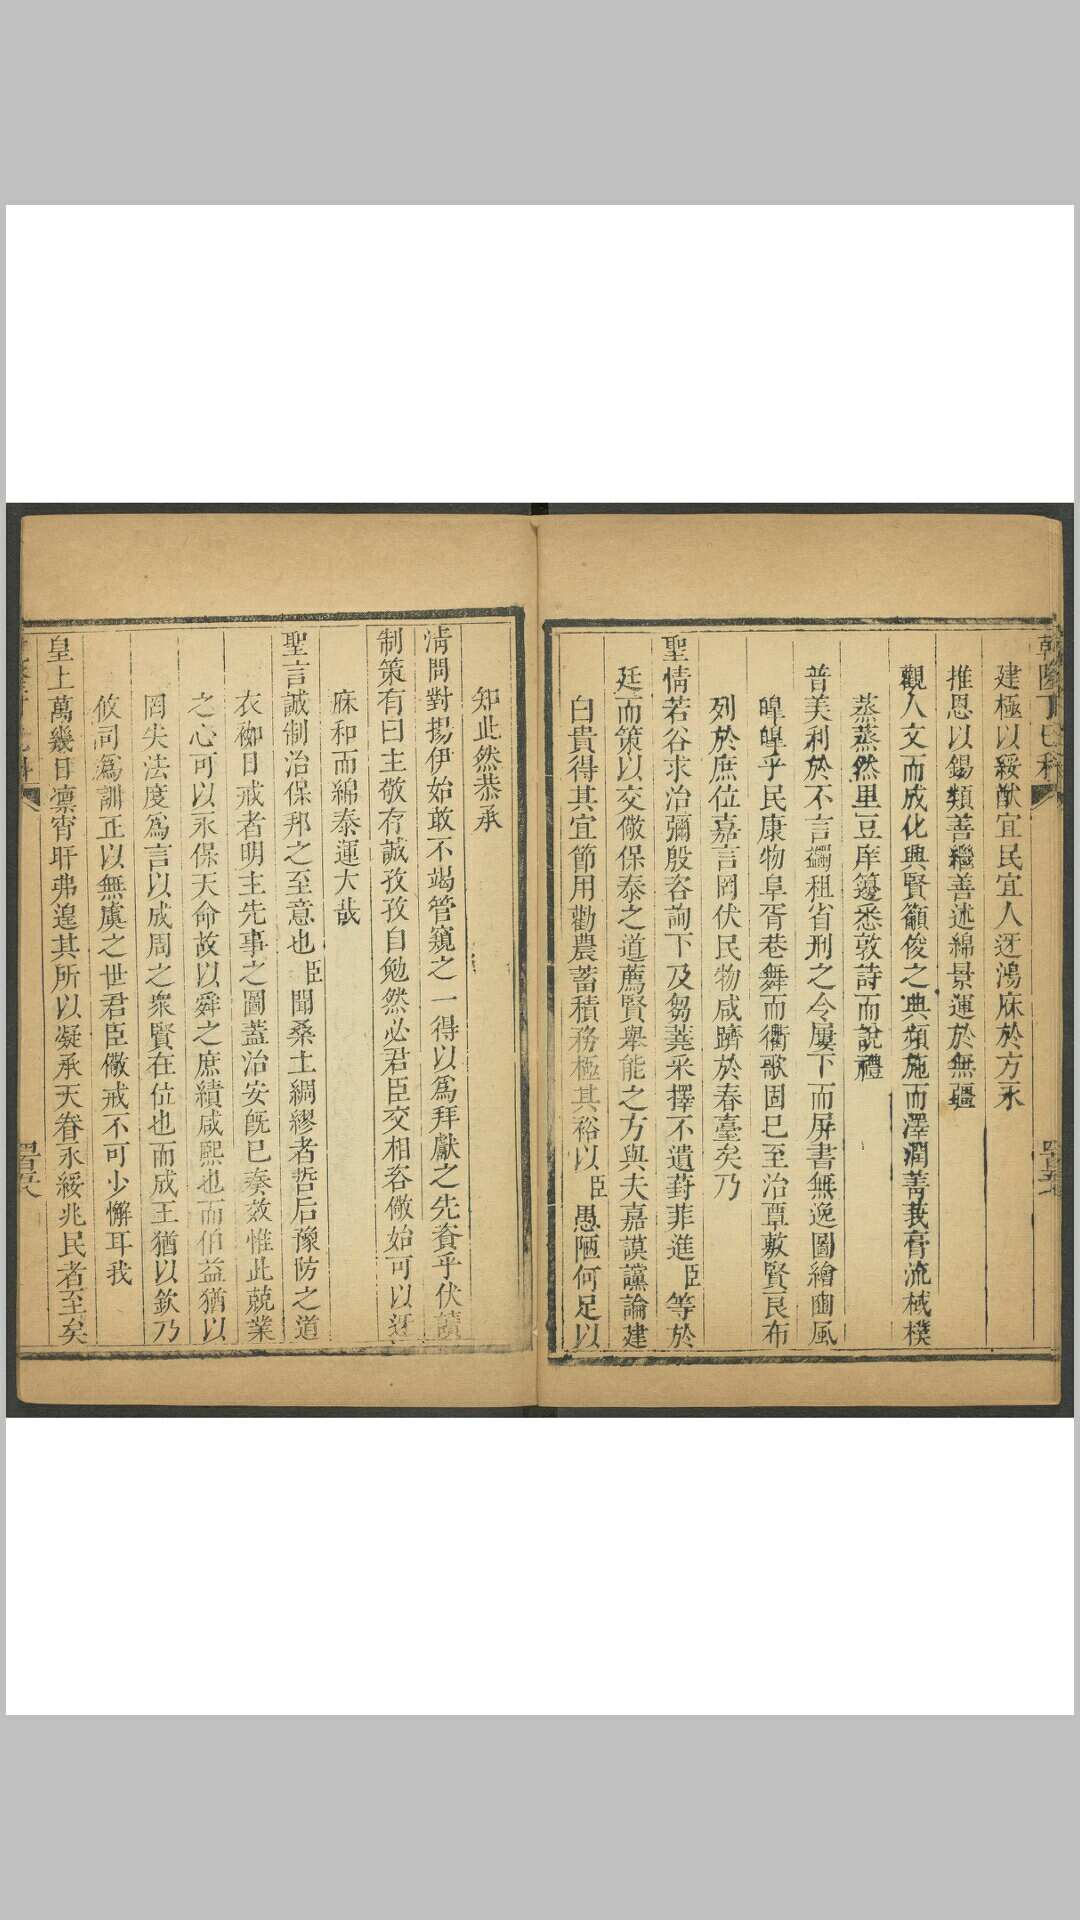 乾隆丁巳科
建極以綏猷宜民宜人迓鴻庥於方永
推恩以錫類善繼善述綿景運於無疆
觀人文而成化興賢籲俊之典頻施而澤潤菁莪膏流棫樸
蒸蒸然里豆庠籩悉敦詩而說禮
普美利於不言蠲租省刑之令屢下而屏書無逸圖繪豳風
皥皥乎民康物阜胥巷舞而衢歌固已至治覃敷賢良布
列於庶位嘉言罔伏民物咸躋於春臺矣乃
聖情若谷求治彌殷咨詢下及芻蕘采擇不遺葑菲進臣等於
廷而策以交儆保泰之道薦賢舉能之方與夫嘉謨讜論建
白貴得其宜節用勸農蓄積務極其裕以臣愚陋何足以
知此然恭承
清問對揚伊始敢不竭管窺之一得以爲拜獻之先資乎伏讀
制策有曰主敬存誠孜孜自勉然必君臣交相咨儆始可以迓
庥和而綿泰運大哉
聖言誠制治保邦之至意也臣聞桑土綢繆者哲后豫防之道
衣袽日戒者明主先事之圖蓋治安旣已奏效惟此兢業
之心可以永保天命故以舜之庶績咸熙也而伯益猶以
罔失法度爲言以成周之衆賢在位也而成王猶以欽乃
攸司爲訓正以無虞之世君臣儆戒不可少懈耳我
皇上萬幾日凜宵旰弗遑其所以凝承天眷永綏兆民者至矣